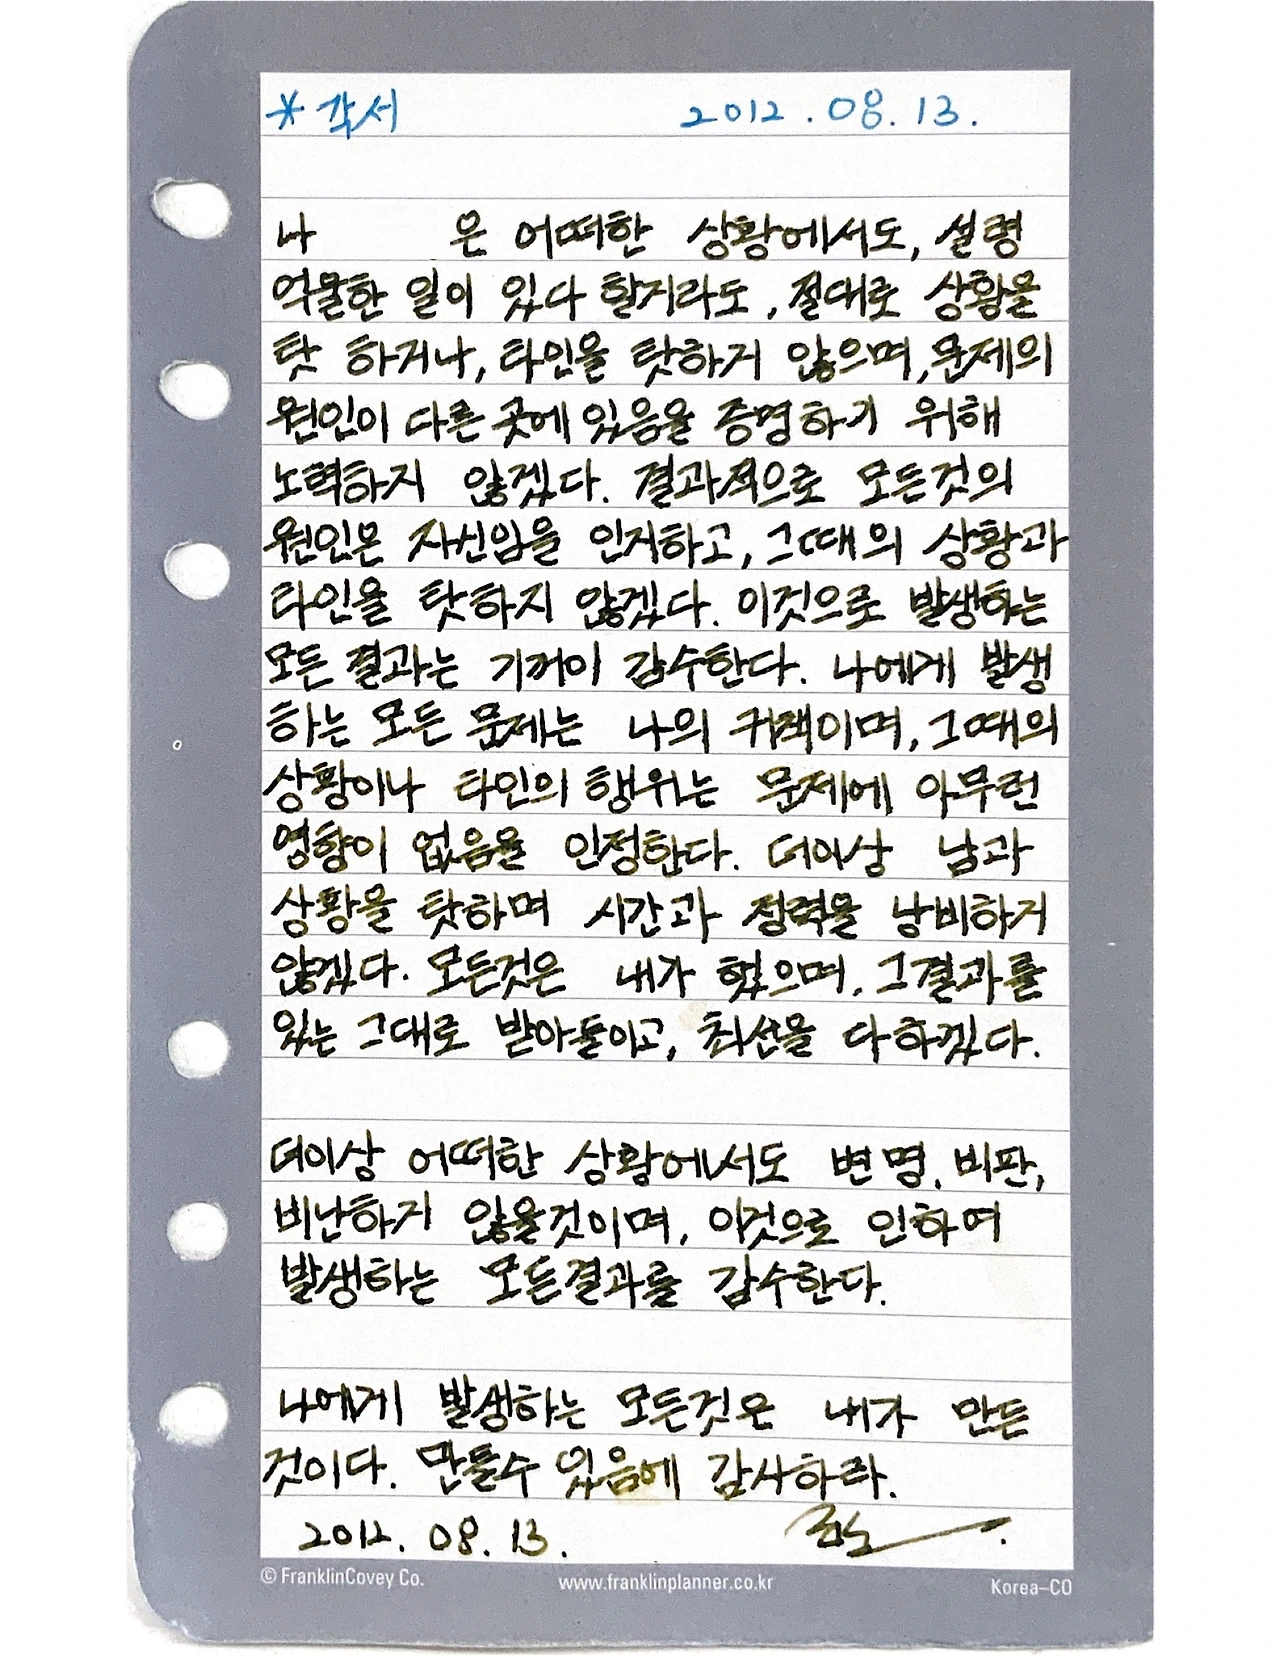 * 각서 2012. 08. 13.
나 은 어떠한 상황에서도, 설령
억울한 일이 있다 할지라도, 절대로 상황을
탓 하거나, 타인을 탓하지 않으며, 문제의
원인이 다른 곳에 있음을 증명하기 위해
노력하지 않겠다. 결과적으로 모든것의
원인은 자신임을 인지하고, 그때의 상황과
타인을 탓하지 않겠다. 이것으로 발생하는
모든 결과는 기꺼이 감수한다. 나에게 발생
하는 모든 문제는 나의 귀책이며, 그때의
상황이나 타인의 행위는 문제에 아무런
영향이 없음을 인정한다. 더이상 남과
상황을 탓하며 시간과 정력을 낭비하지
않겠다. 모든것은 내가 했으며, 그결과를
있는 그대로 받아들이고, 최선을 다하겠다.
더이상 어떠한 상황에서도 변명, 비판,
비난하지 않을것이며, 이것으로 인하여
발생하는 모든결과를 감수한다.
나에게 발생하는 모든것은 내가 만든
것이다. 만들수 있음에 감사하라.
2012. 08. 13.
© FranklinCovey Co. www.franklinplanner.co.kr Korea-CO